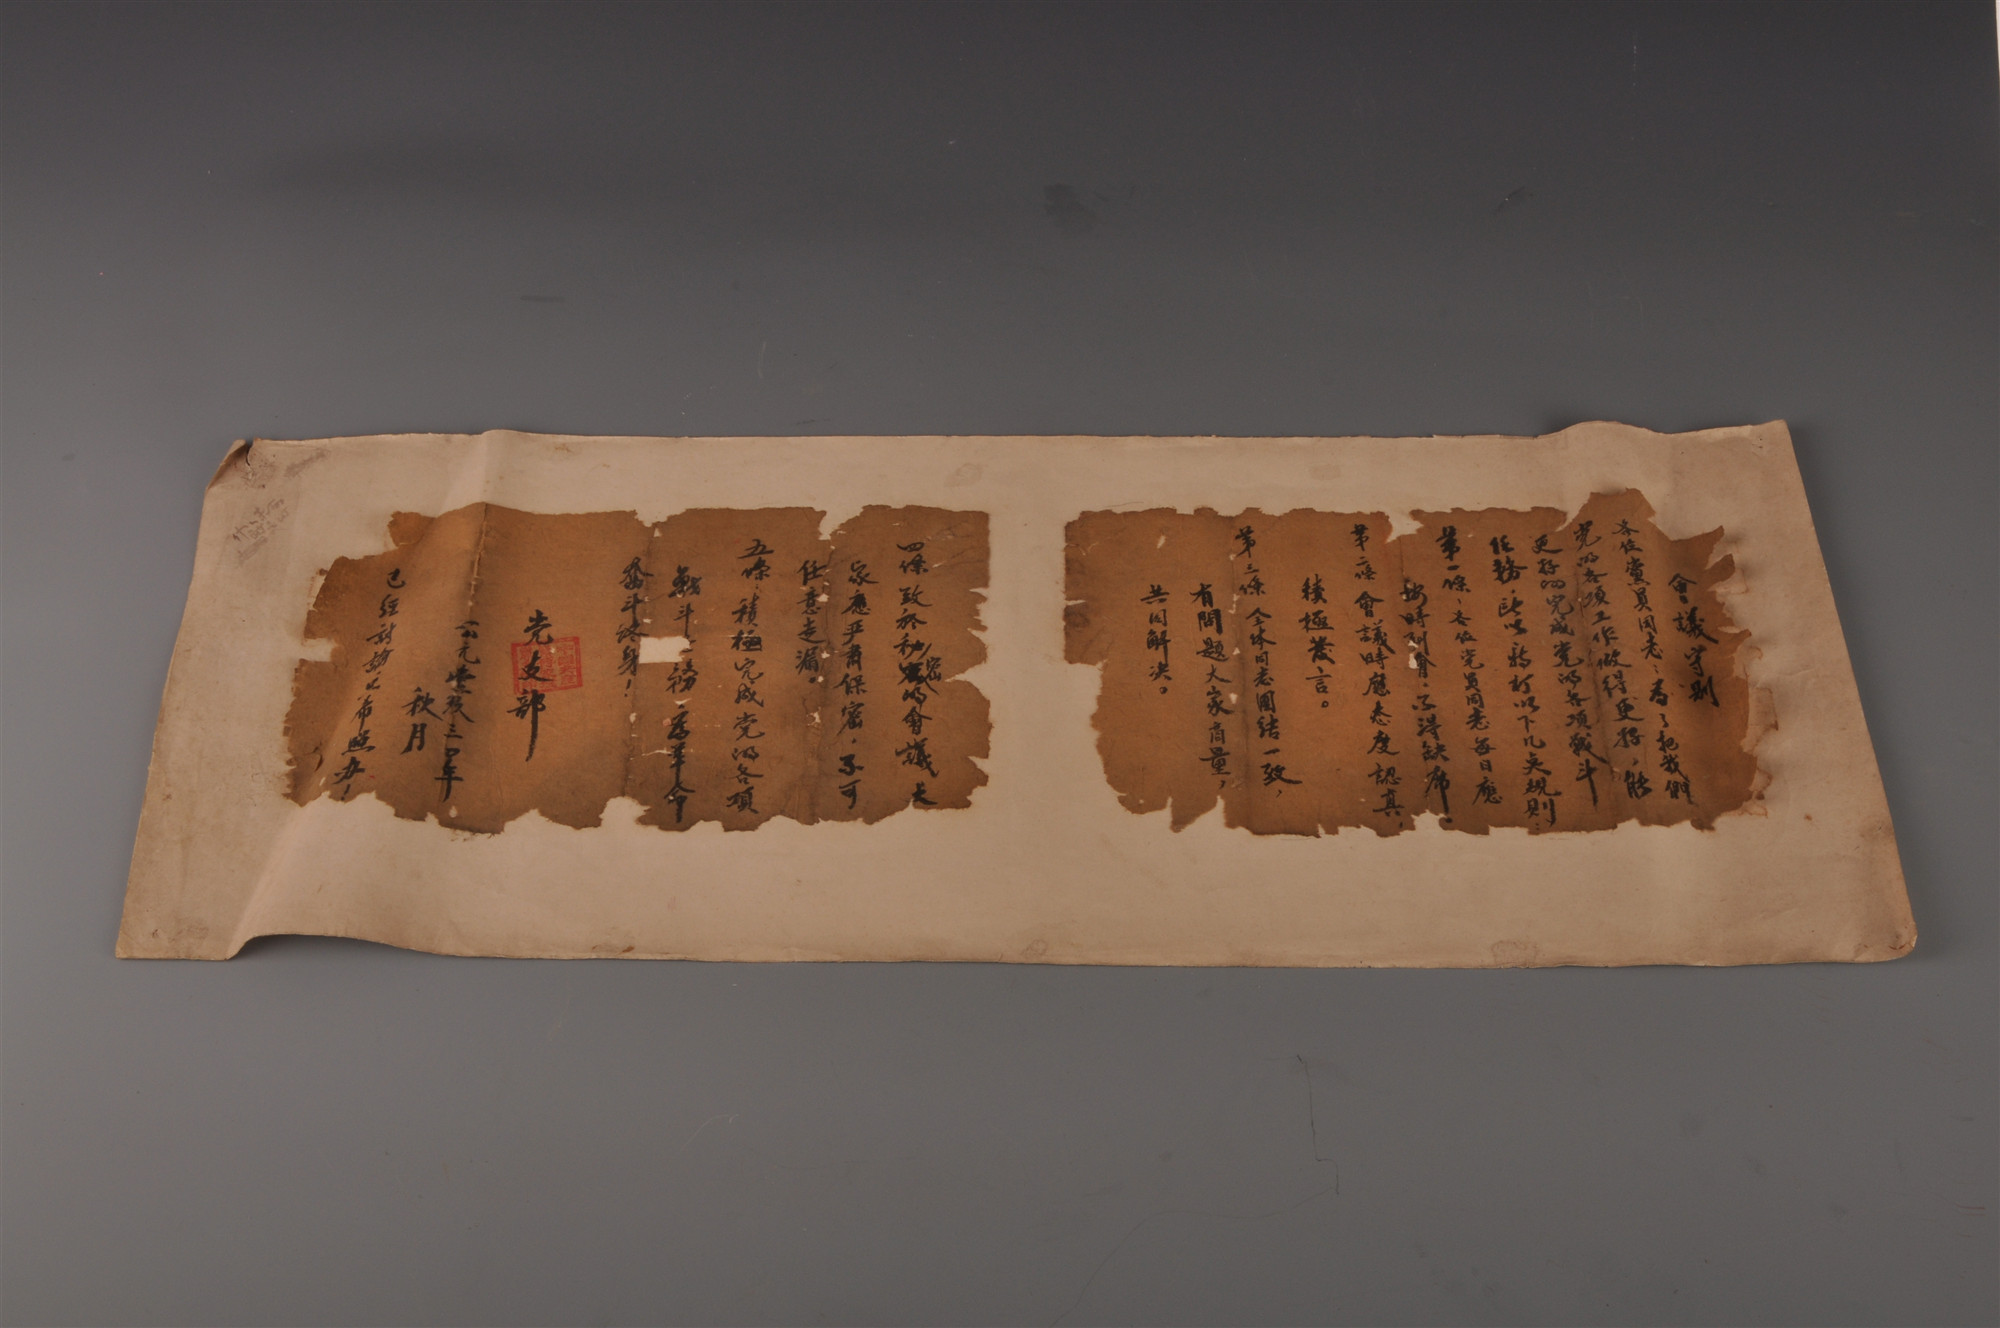 會議守則
各位黨員同志：為了把我們
党的各項工作做得更好，能
更好的完成党的各項战斗
任務，所以新訂以下几点規則：
第一條、各位党員同志每日應
按時到會，不得缺席。
第二條 會議時應态度認真，
積極發言。
第三條 全体同志團結一致，
有問題大家商量，
共同解决。
四條 致於秘密的會議 大
家應严肃保密，不可
任意走漏。
五條：積極完成党的各項
戰斗 務，為革命
奮斗終身！
党支部
公元 三四年
秋月
已经討論公布照办！